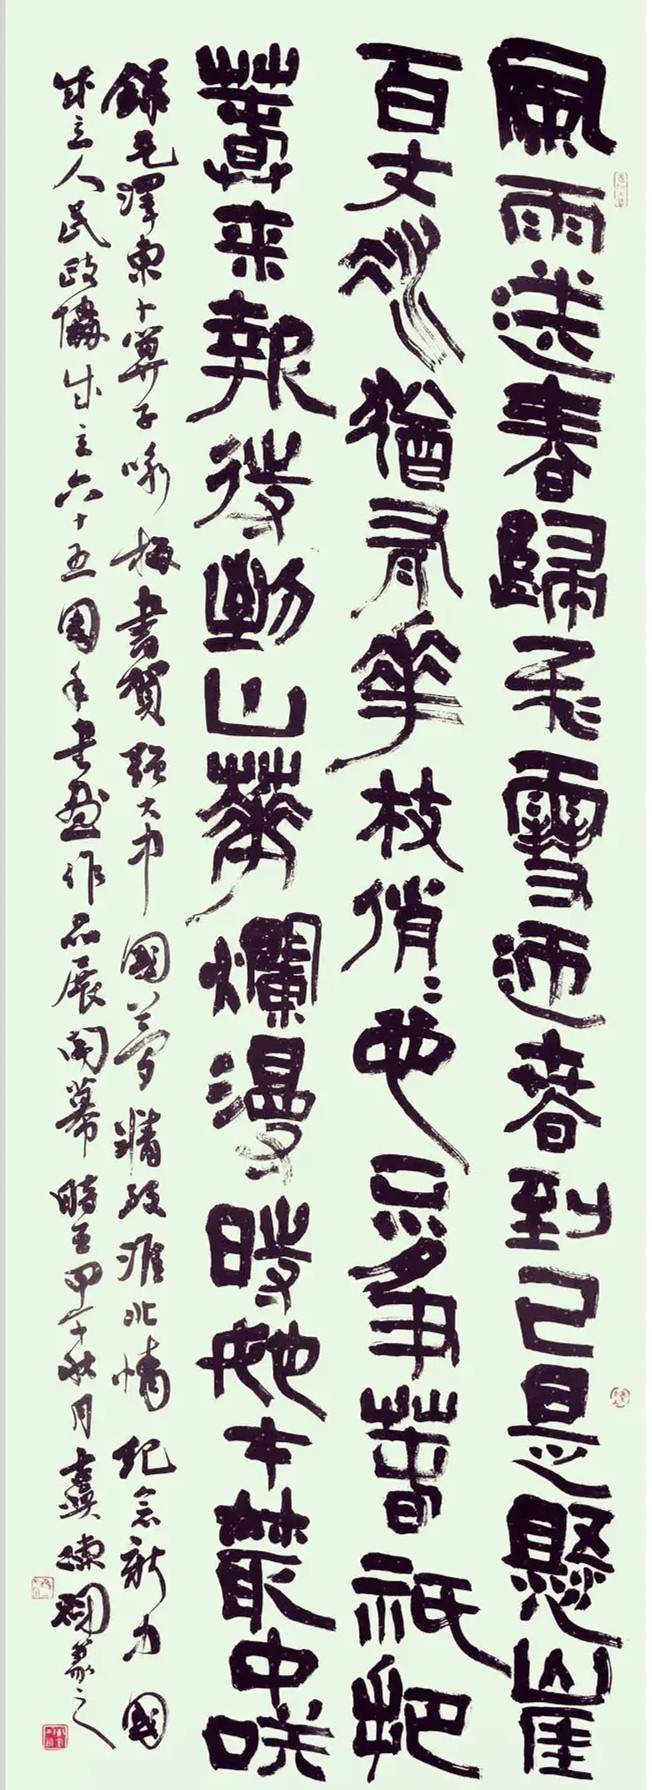 風雨送春歸飛雪迎春到已是懸崖
百丈冰猶有花枝俏俏也不爭春祇把
春來報待到山花爛漫時她在叢中咲
錄毛澤東卜算子咏梅書賀強大中國夢精致淮北情紀念新力國
成立人民政協成立六十五周年書畫作品展開幕時在甲午秋月